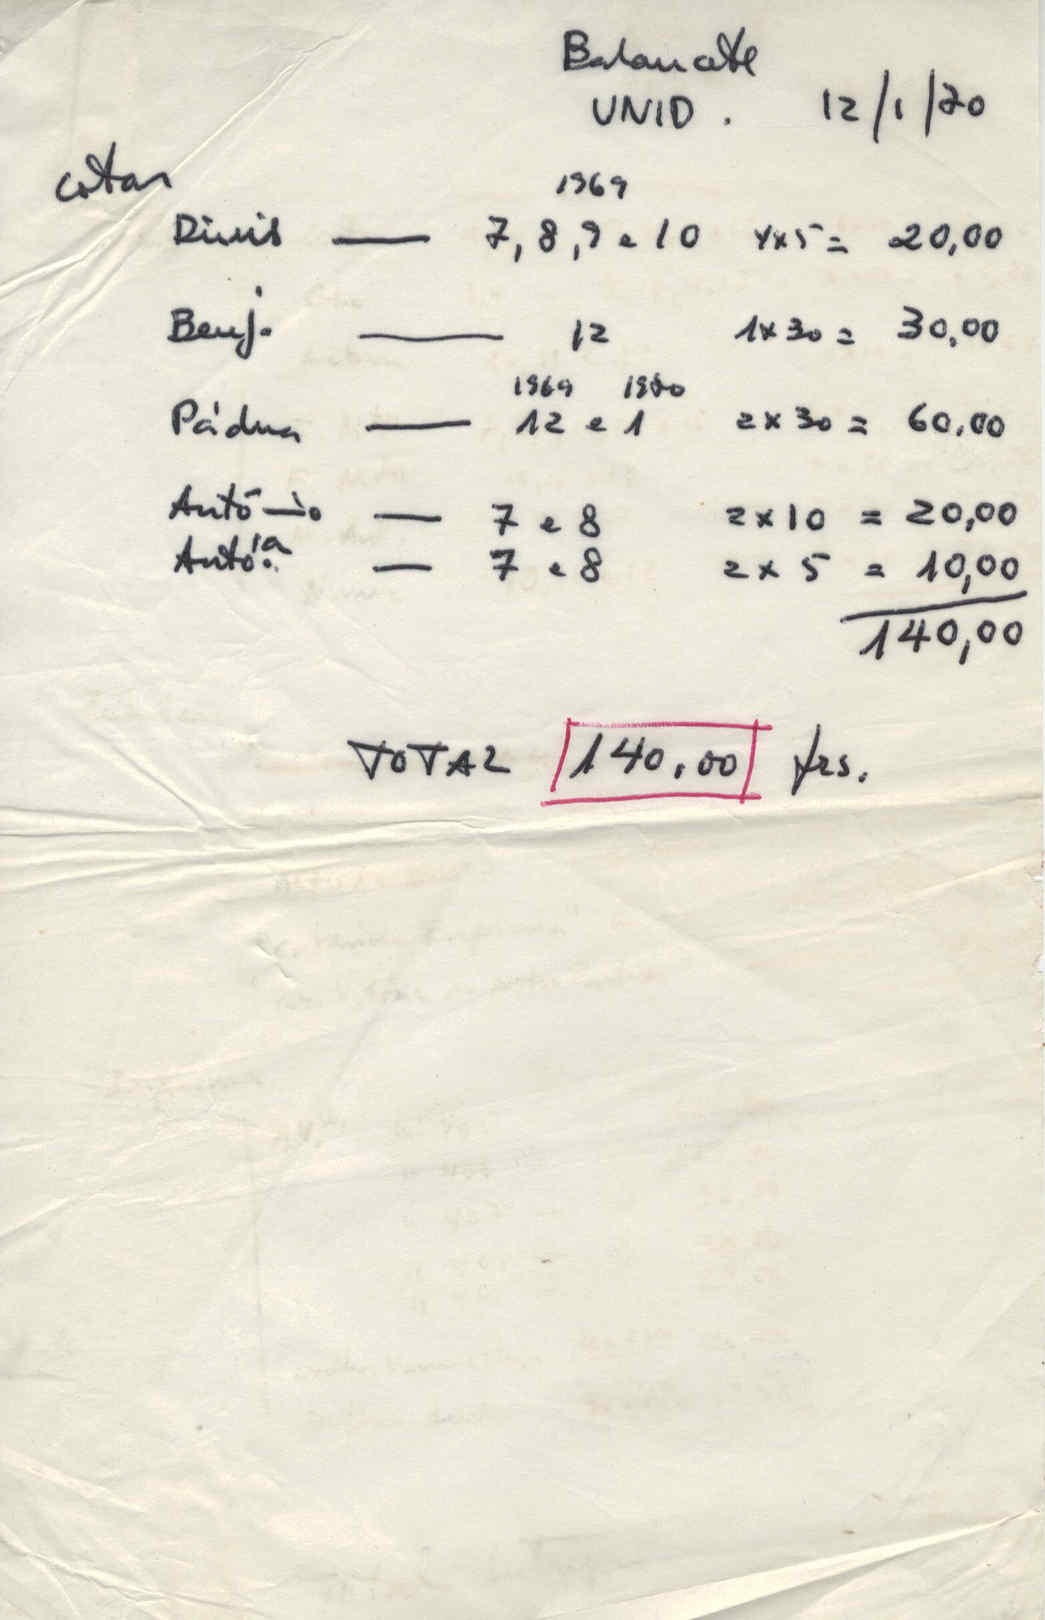 Balancete
UNID. 12/1/70
cotas
1969
Dinis — 7, 8, 9 e 10 4x5= 20,00
Benj. — 12 1x30= 30,00
1969 1970
Pádua — 12 e 1 2x30= 60,00
António — 7 e 8 2x10 = 20,00
Antó.ª — 7 e 8 2x5 = 10,00
140,00
TOTAL 140,00 frs.